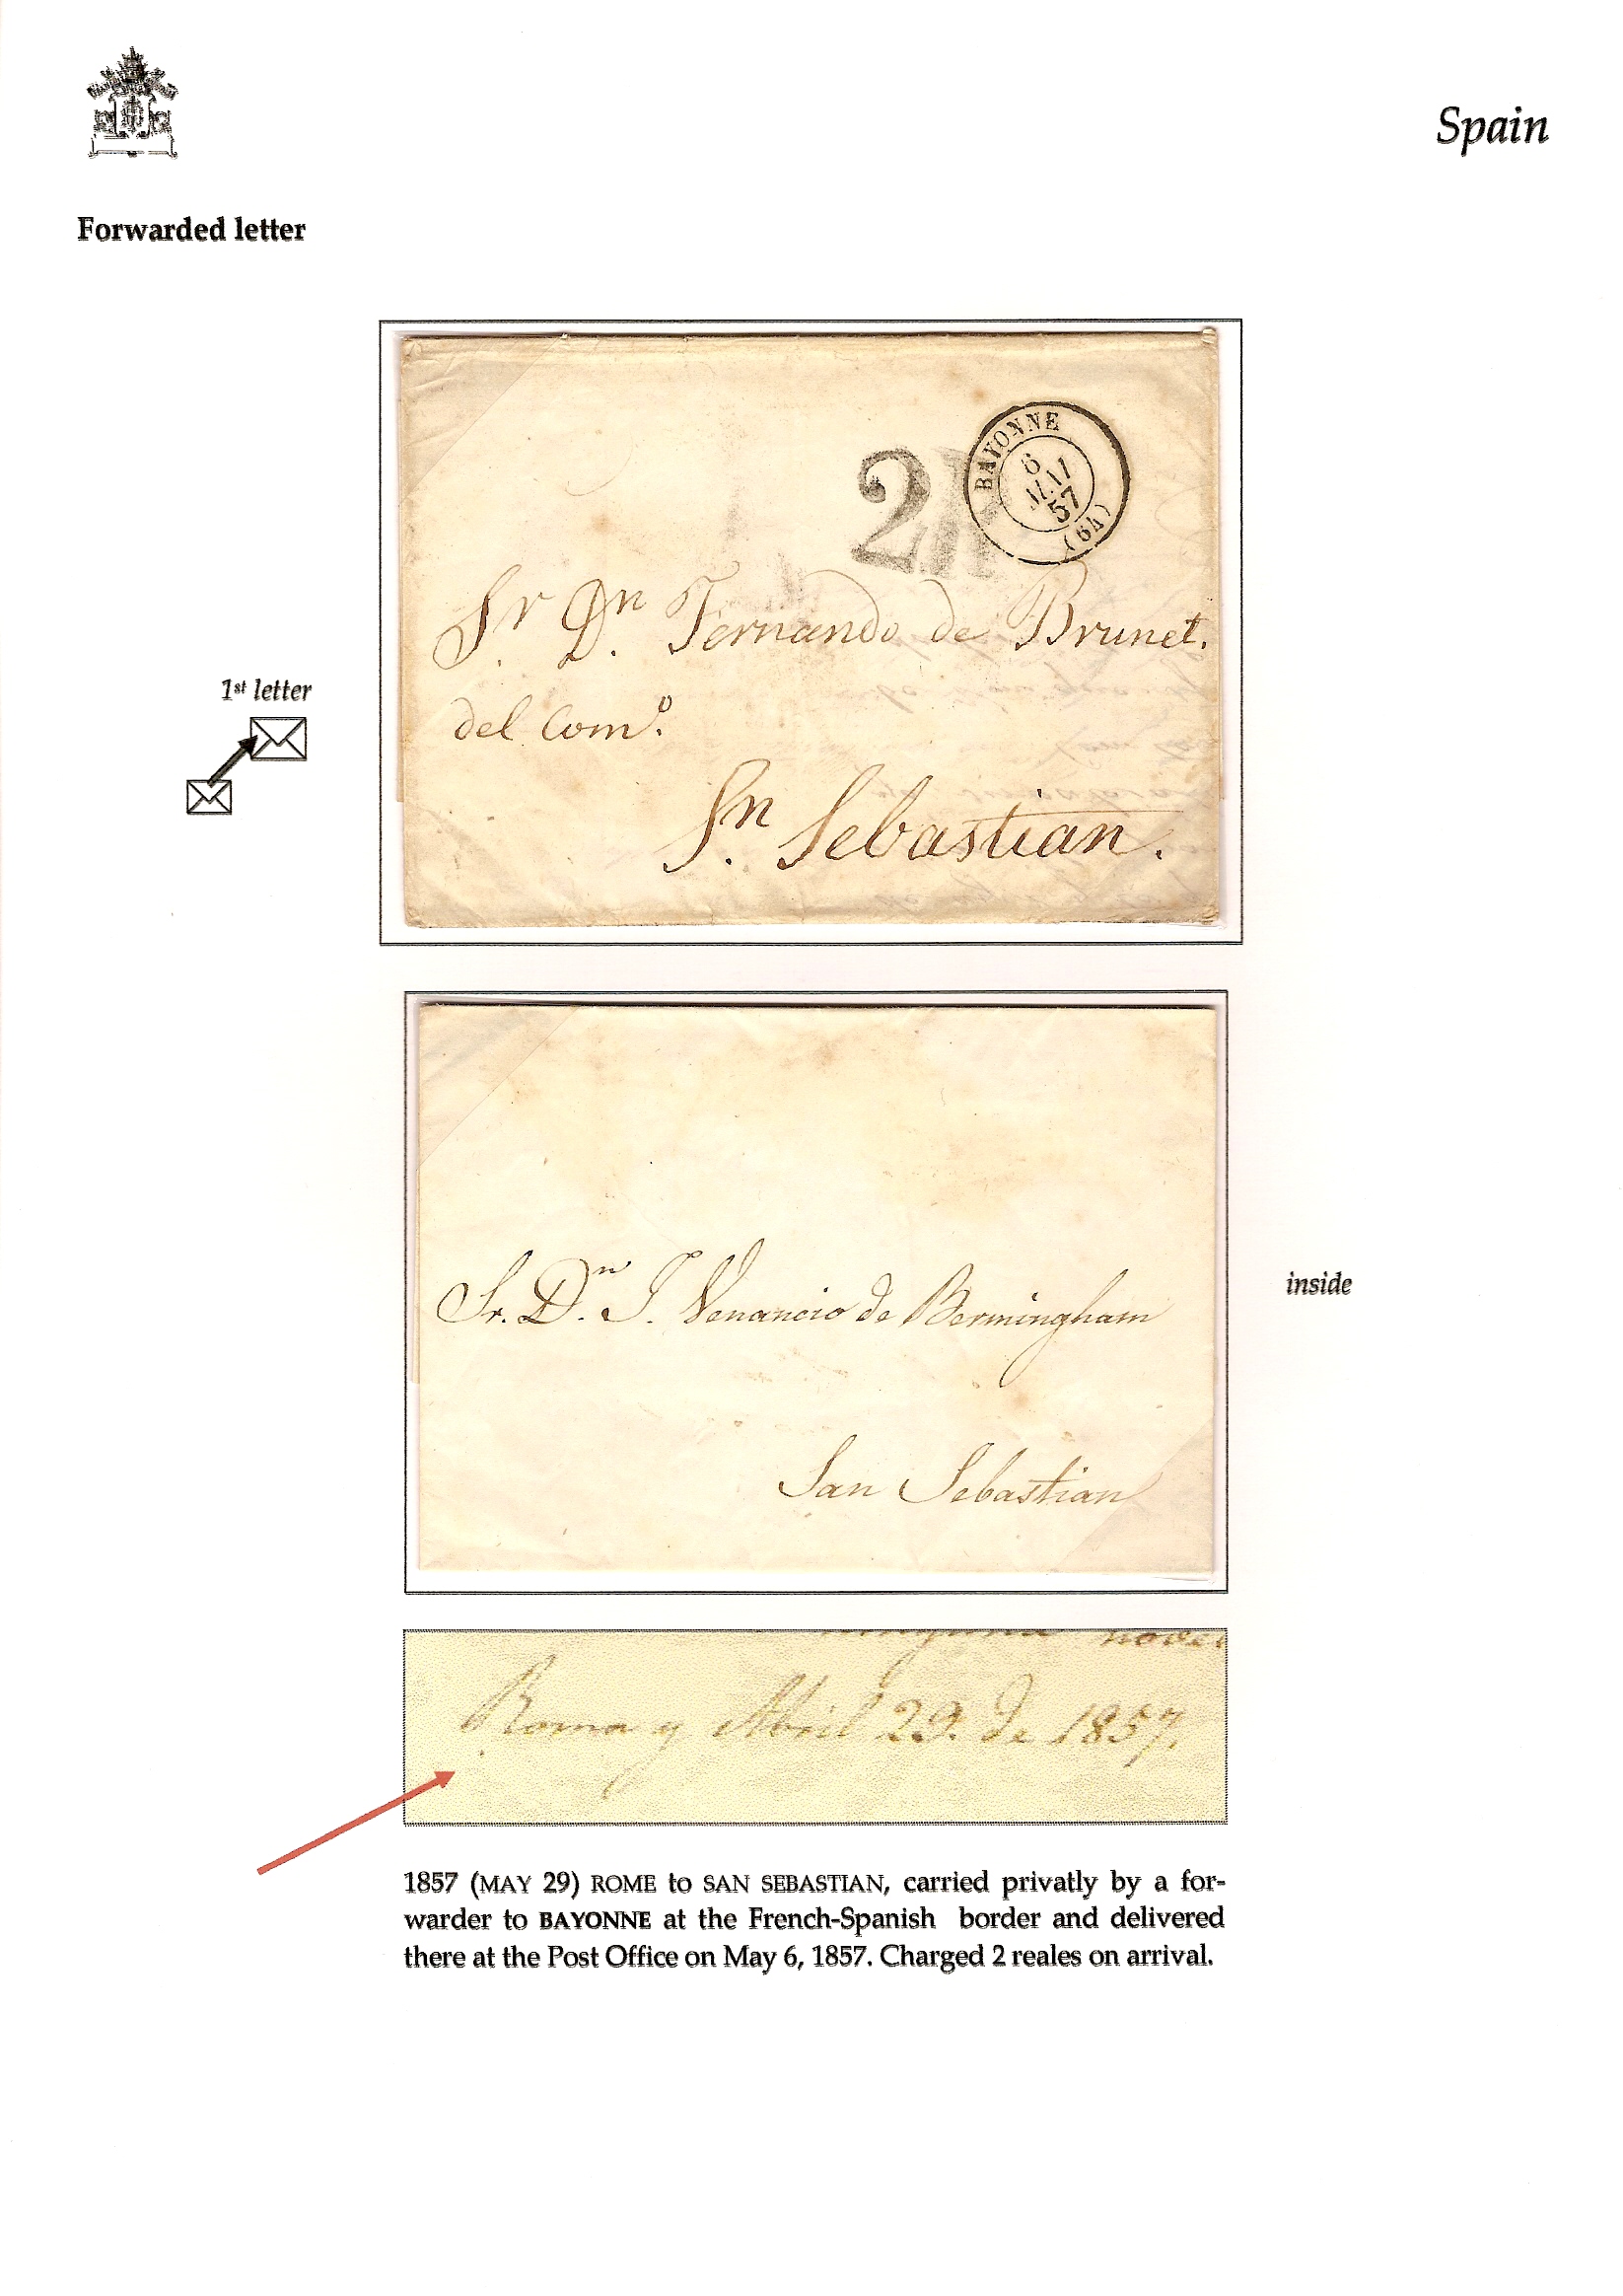 Spain
Forwarded letter
2R
BAYONNE
6
MAI
57
(64)
Sr. Dn. Fernando de Brunet.
del Como.
Sn. Sebastian.
1st letter
Sr. Dn. J. Venancio de Bermingham
San Sebastian
inside
ninguna
Roma y Abril 29. de 1857.
1857 (MAY 29) ROME to SAN SEBASTIAN, carried privatly by a for-
warder to BAYONNE at the French-Spanish border and delivered
there at the Post Office on May 6, 1857. Charged 2 reales on arrival.